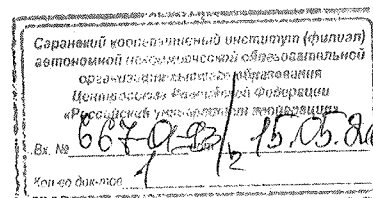 Саранский кооперативный институт (филиал)
автономной некоммерческой образовательной
организации высшего образования
Центросоюза Российской Федерации
«Российский университет кооперации»
Вх. № 15.05.20
Кол-во док-тов